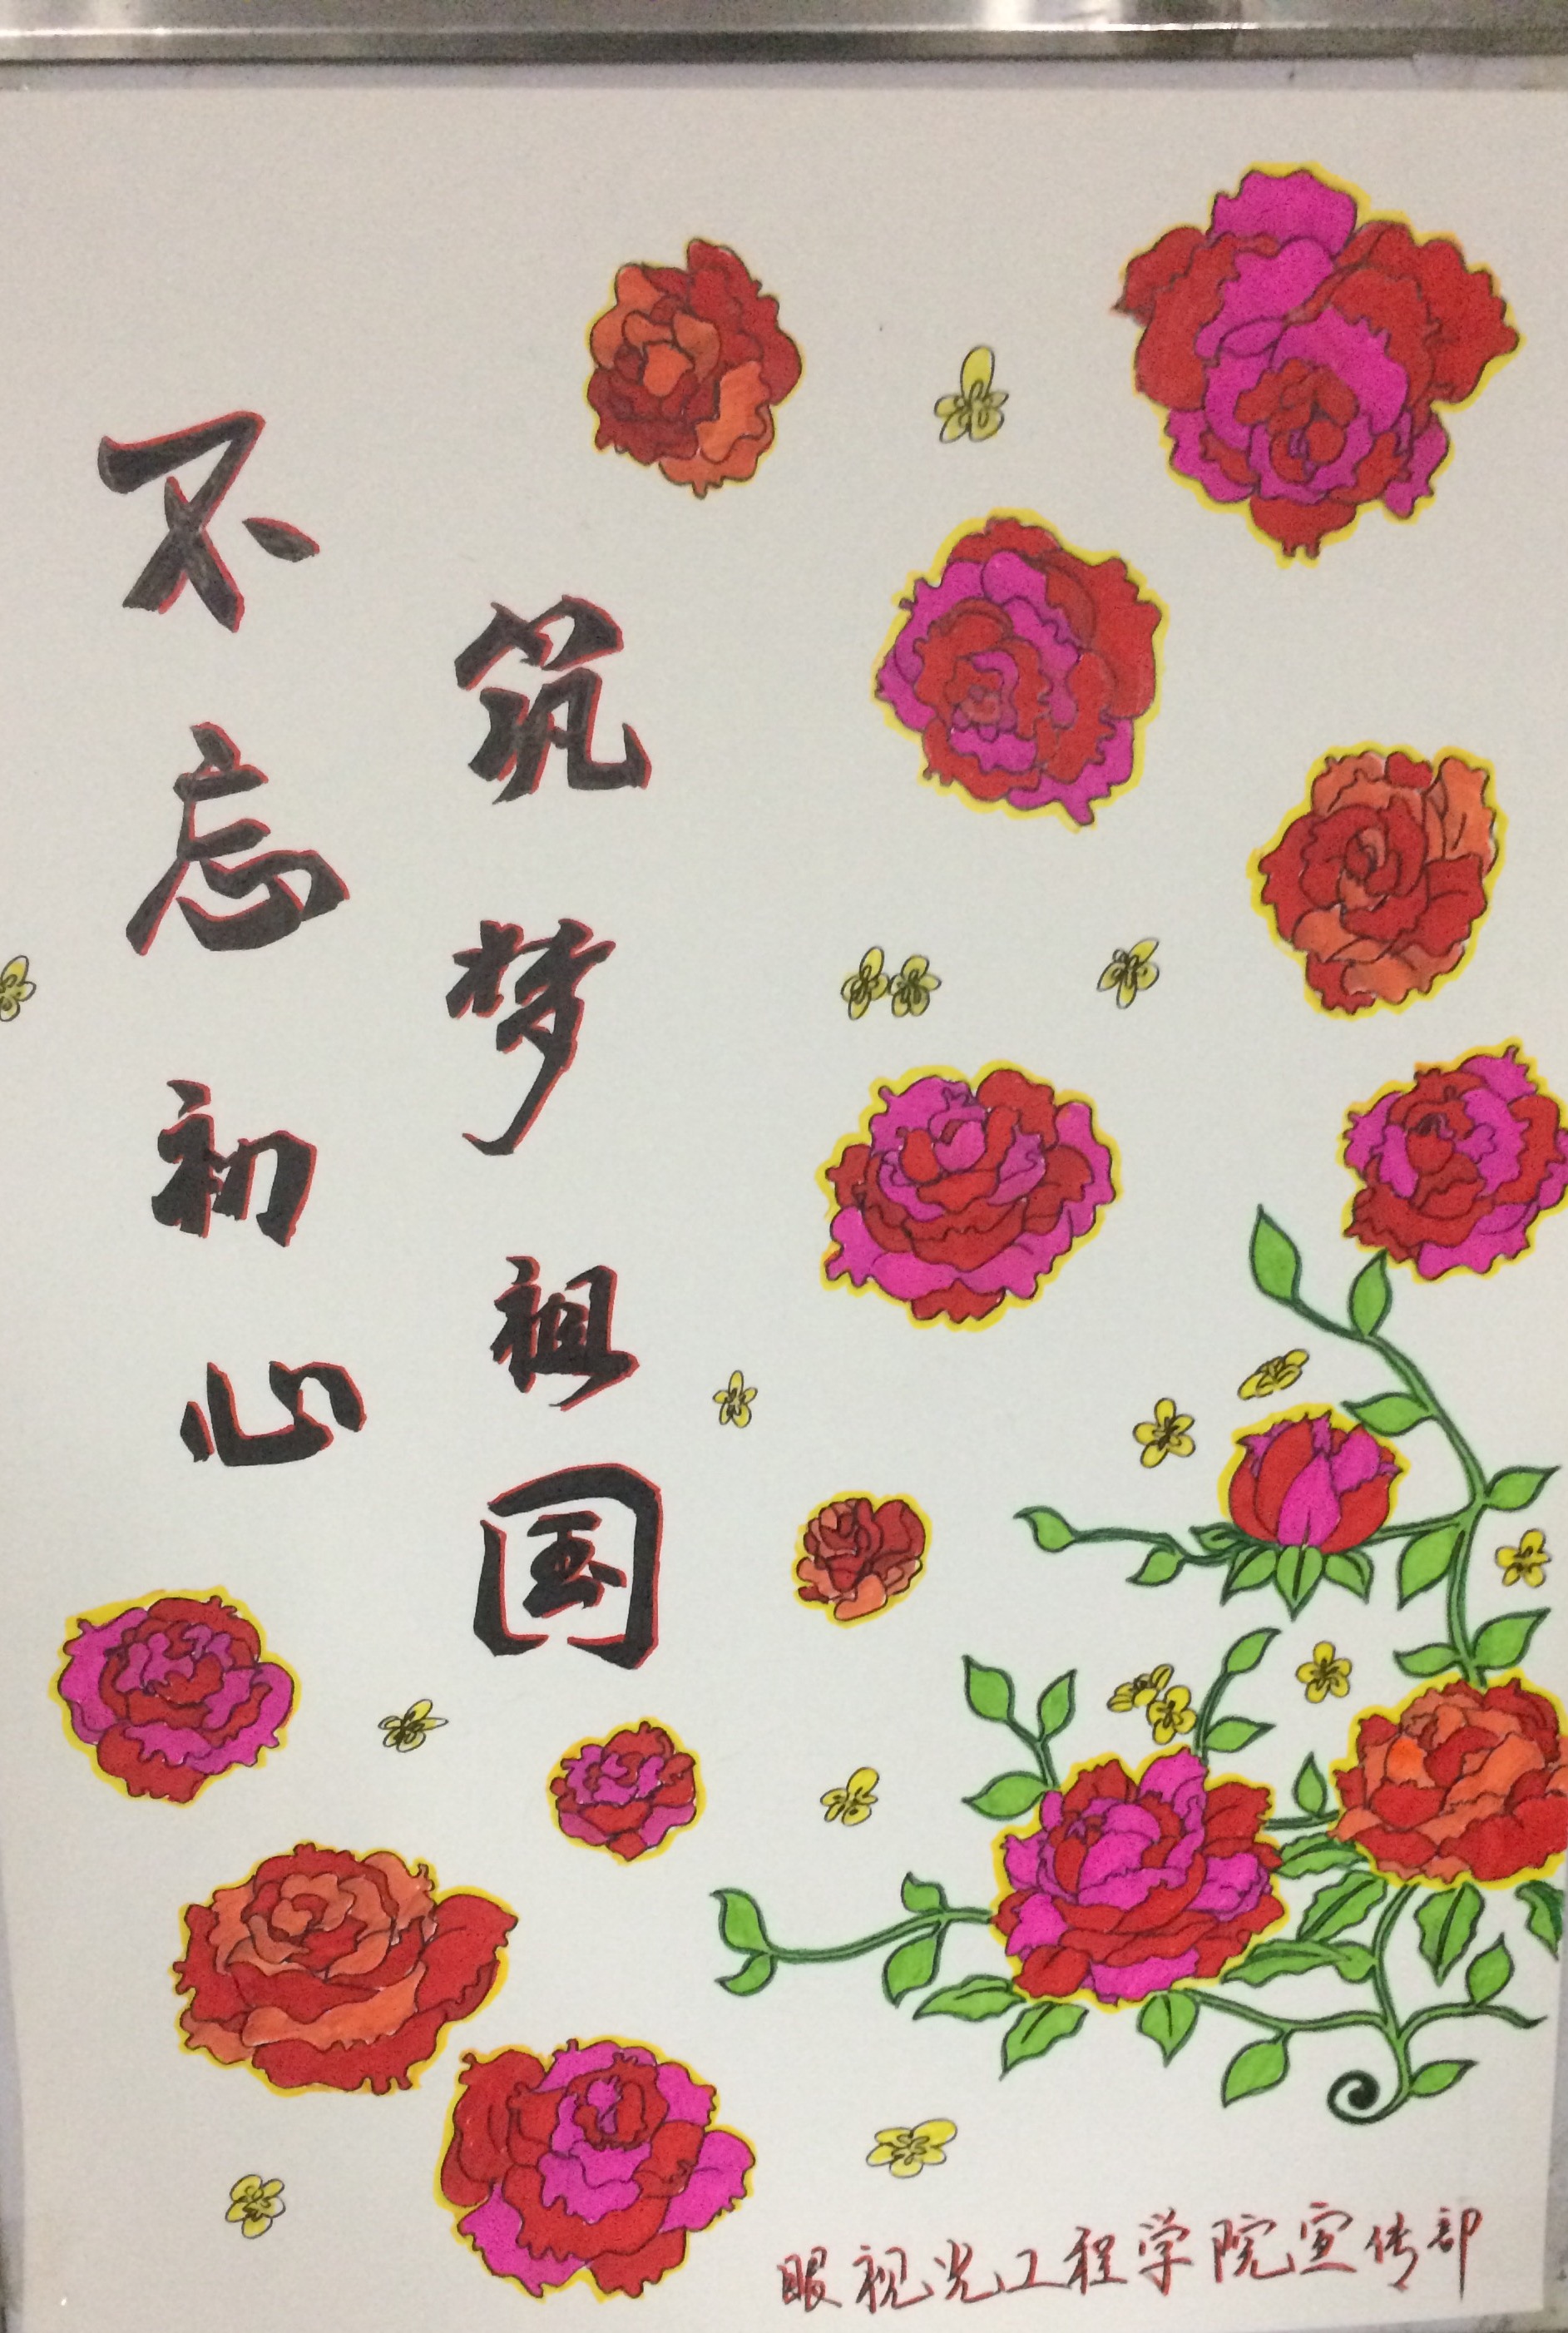 不忘初心
筑梦祖国
眼视光工程学院宣传部